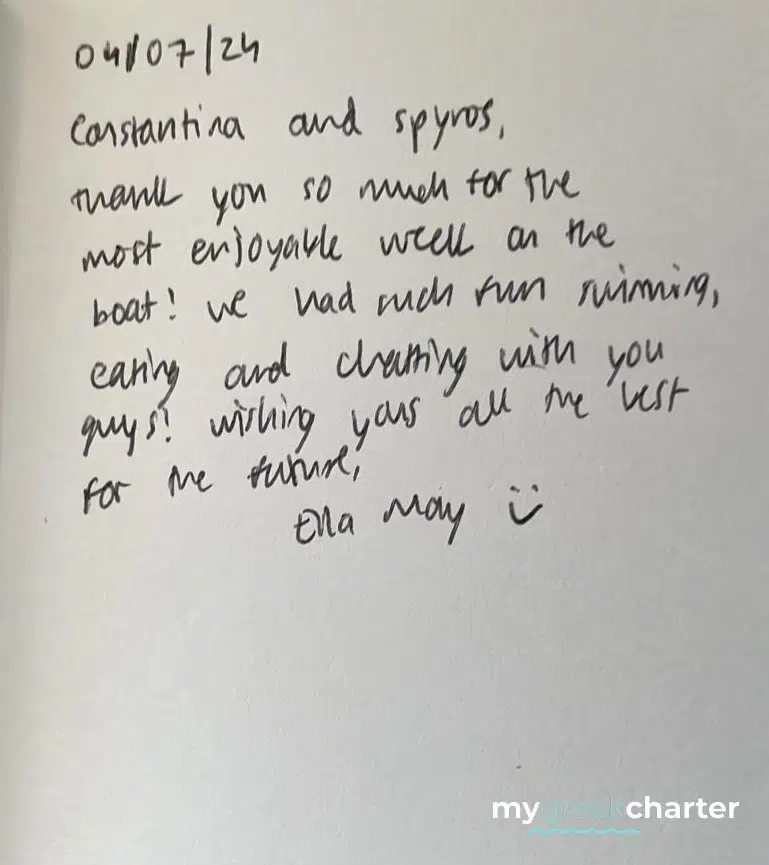 04/07/24
Constantina and Spyros,
thank you so much for the
most enjoyable week on the
boat! we had such fun swimming,
eating and chatting with you
guys! wishing yous all the best
for the future,
Ella May ü
mygreekcharter